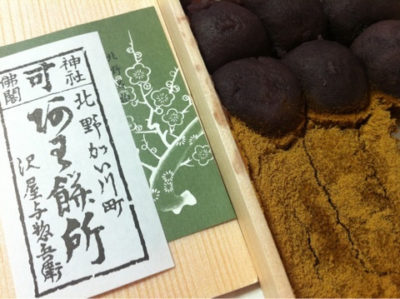 神社
佛閣
北野かい川町
阿王餅所
沢屋与惣兵衛